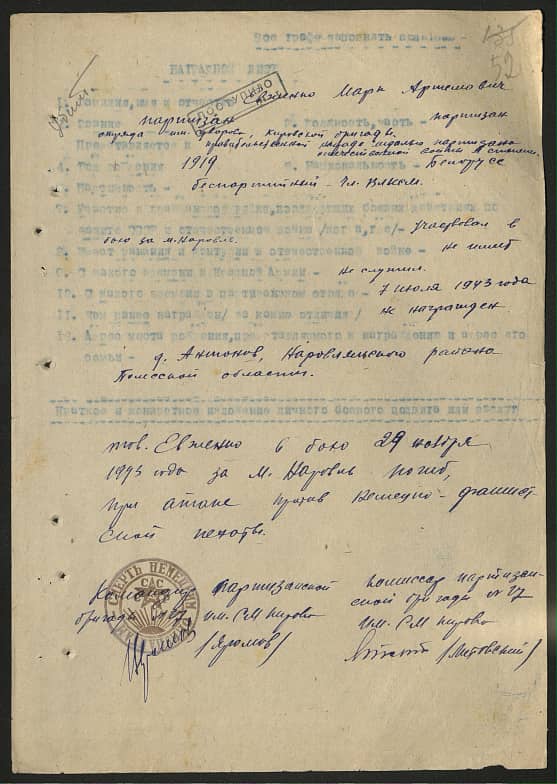 Все графы заполнять полностью
52
НАГРАДНОЙ ЛИСТ
ПОСТУПИЛО
1. Фамилия, имя и отчество Евженко Марк Артемович
2. Звание партизан 3. Должность, часть партизан
отряда им. Суворова, Кировской бригады.
Представляется к правительственной награде медалью партизана
отечественной войны II степени.
4. Год рождения 1919 5. Национальность - Белорусс
6. Партийность - беспартийный - чл. ВЛКСМ.
7. Участие в гражданской войне, последующих боевых действиях по
защите СССР и отечественной войне /где и когда/ - Участвовал в
бою за м. Наровль.
8. Имеет ранения и контузии в отечественной войне - не имеет
9. С какого времени в Красной Армии - не служил.
10. С какого времени в партизанском отряде - 7 июля 1943 года
11. Чем ранее награжден /за какие отличия/ не награжден
12. Адрес места рождения, представляемого к награждению и адрес его
семьи - д. Антонов, Наровлянского района
Полесской области.
Краткое и конкретное изложение личного боевого подвига или заслуг
тов. Евженко в бою 29 ноября
1943 года за м. Наровль погиб,
при атаке против немецко-фашист
ской пехоты.
СМЕРТЬ НЕМЕЦКИМ
Командир партизанской
бригады №27 им. СМ Кирова
/Яромов/
Комиссар партизан-
ской бригады №27
им. СМ Кирова
/Митовский/